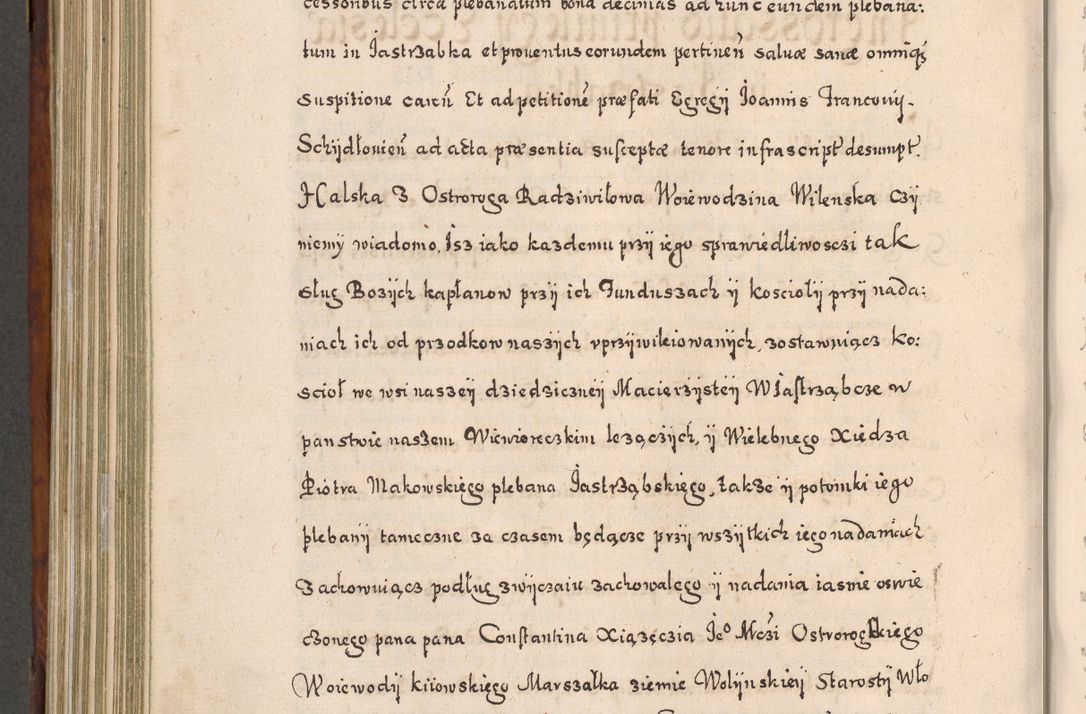 cessoribus circa plebanatum bona decimas ad hunc eundem plebana:
tum in Jastrzabka et prouentus eorundem pertineñ saluæ sanæ omniq3
suspitione careñ Et ad petitionẽ præfati Egregij Joannis Francouij-
Schijdłouieñ ad acta præsentia susceptæ tenore infrascript desumpt.
Halska z Ostroroga Radziwiłowa Woiewodzina Wilenska czij
niemy wiadomo, Isz iako kazdemu przij iego sprawiedliwosczi tak
sług Bozijch kapłanow przij ich Funduszach ij kosciolij przij nada:
niach ich od przodkow naszijch vprzijwileiowanijch, zostawuiącz ko:
scioł we wsi naszeij dziedziczneij Macierzijsteij W Jastrząbcze w
panstwie naszem Wiewioreczkim lezączijch, ij Wielebnego Xiedza
Piotra Makowskięgo plebana Jastrząbskięgo, także ij potomki iego
plebanij tameczne za czasem będącze przij wszijtkich iego nadaniach
Zachowuiącz podług zwijczaiu zachowalego ij nadania iasnie oswie
czonego pana pana Constantina Xiązęczia Jeº Mczi Ostrorogskiego
Woiewodij kiiowskięgo Marszałka ziemie Wolijnskieij Starostij Wło